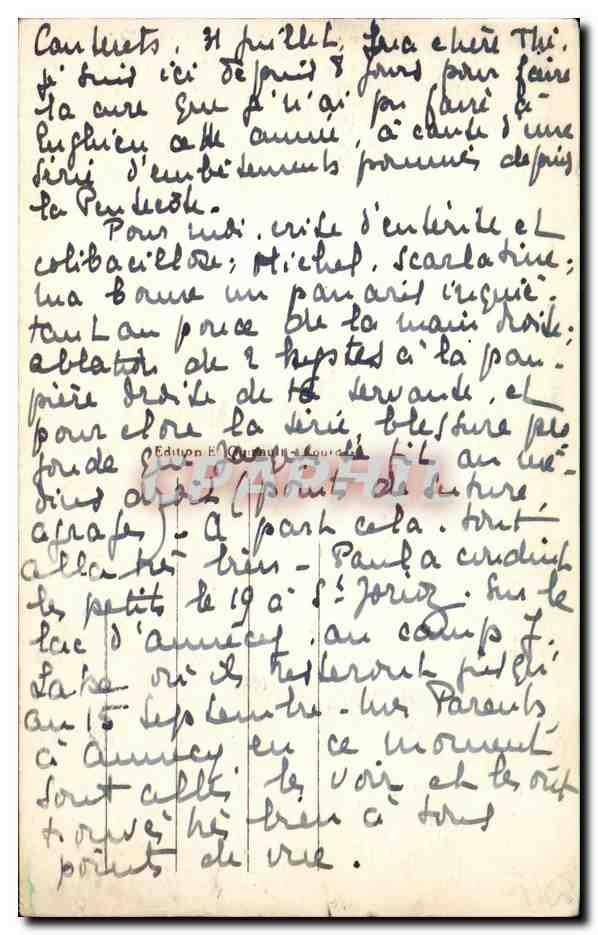 Cauterets, 31 juillet, ma chère Thé.
Je suis ici depuis 8 jours pour faire
la cure que je n'ai pu faire à
Enghien cette année, à cause d'une
série d'embêtements pommés depuis
la Pentecôte.
Pour moi, crise d'entérite et
colibacillose; Michel, scarlatine;
ma bonne un panaris inquié-
tant au pouce de la main droite;
ablation de 2 kystes à la pau-
pière droite de la servante, et
pour clore la série, blessure pro
fonde que se fit au mé-
Edition E.
CPARAMA
dius droit (points de suture,
agrafes). A part cela, tout
alla très bien - Paul a conduit
les petits le 19 à St Jorioz. Sur le
lac d'Annecy, au camp J.
où ils resteront jusqu'
au 15 septembre. Mes Parents,
à Annecy en ce moment
sont allés les voir et les ont
trouvés très bien à tous
points de vue.